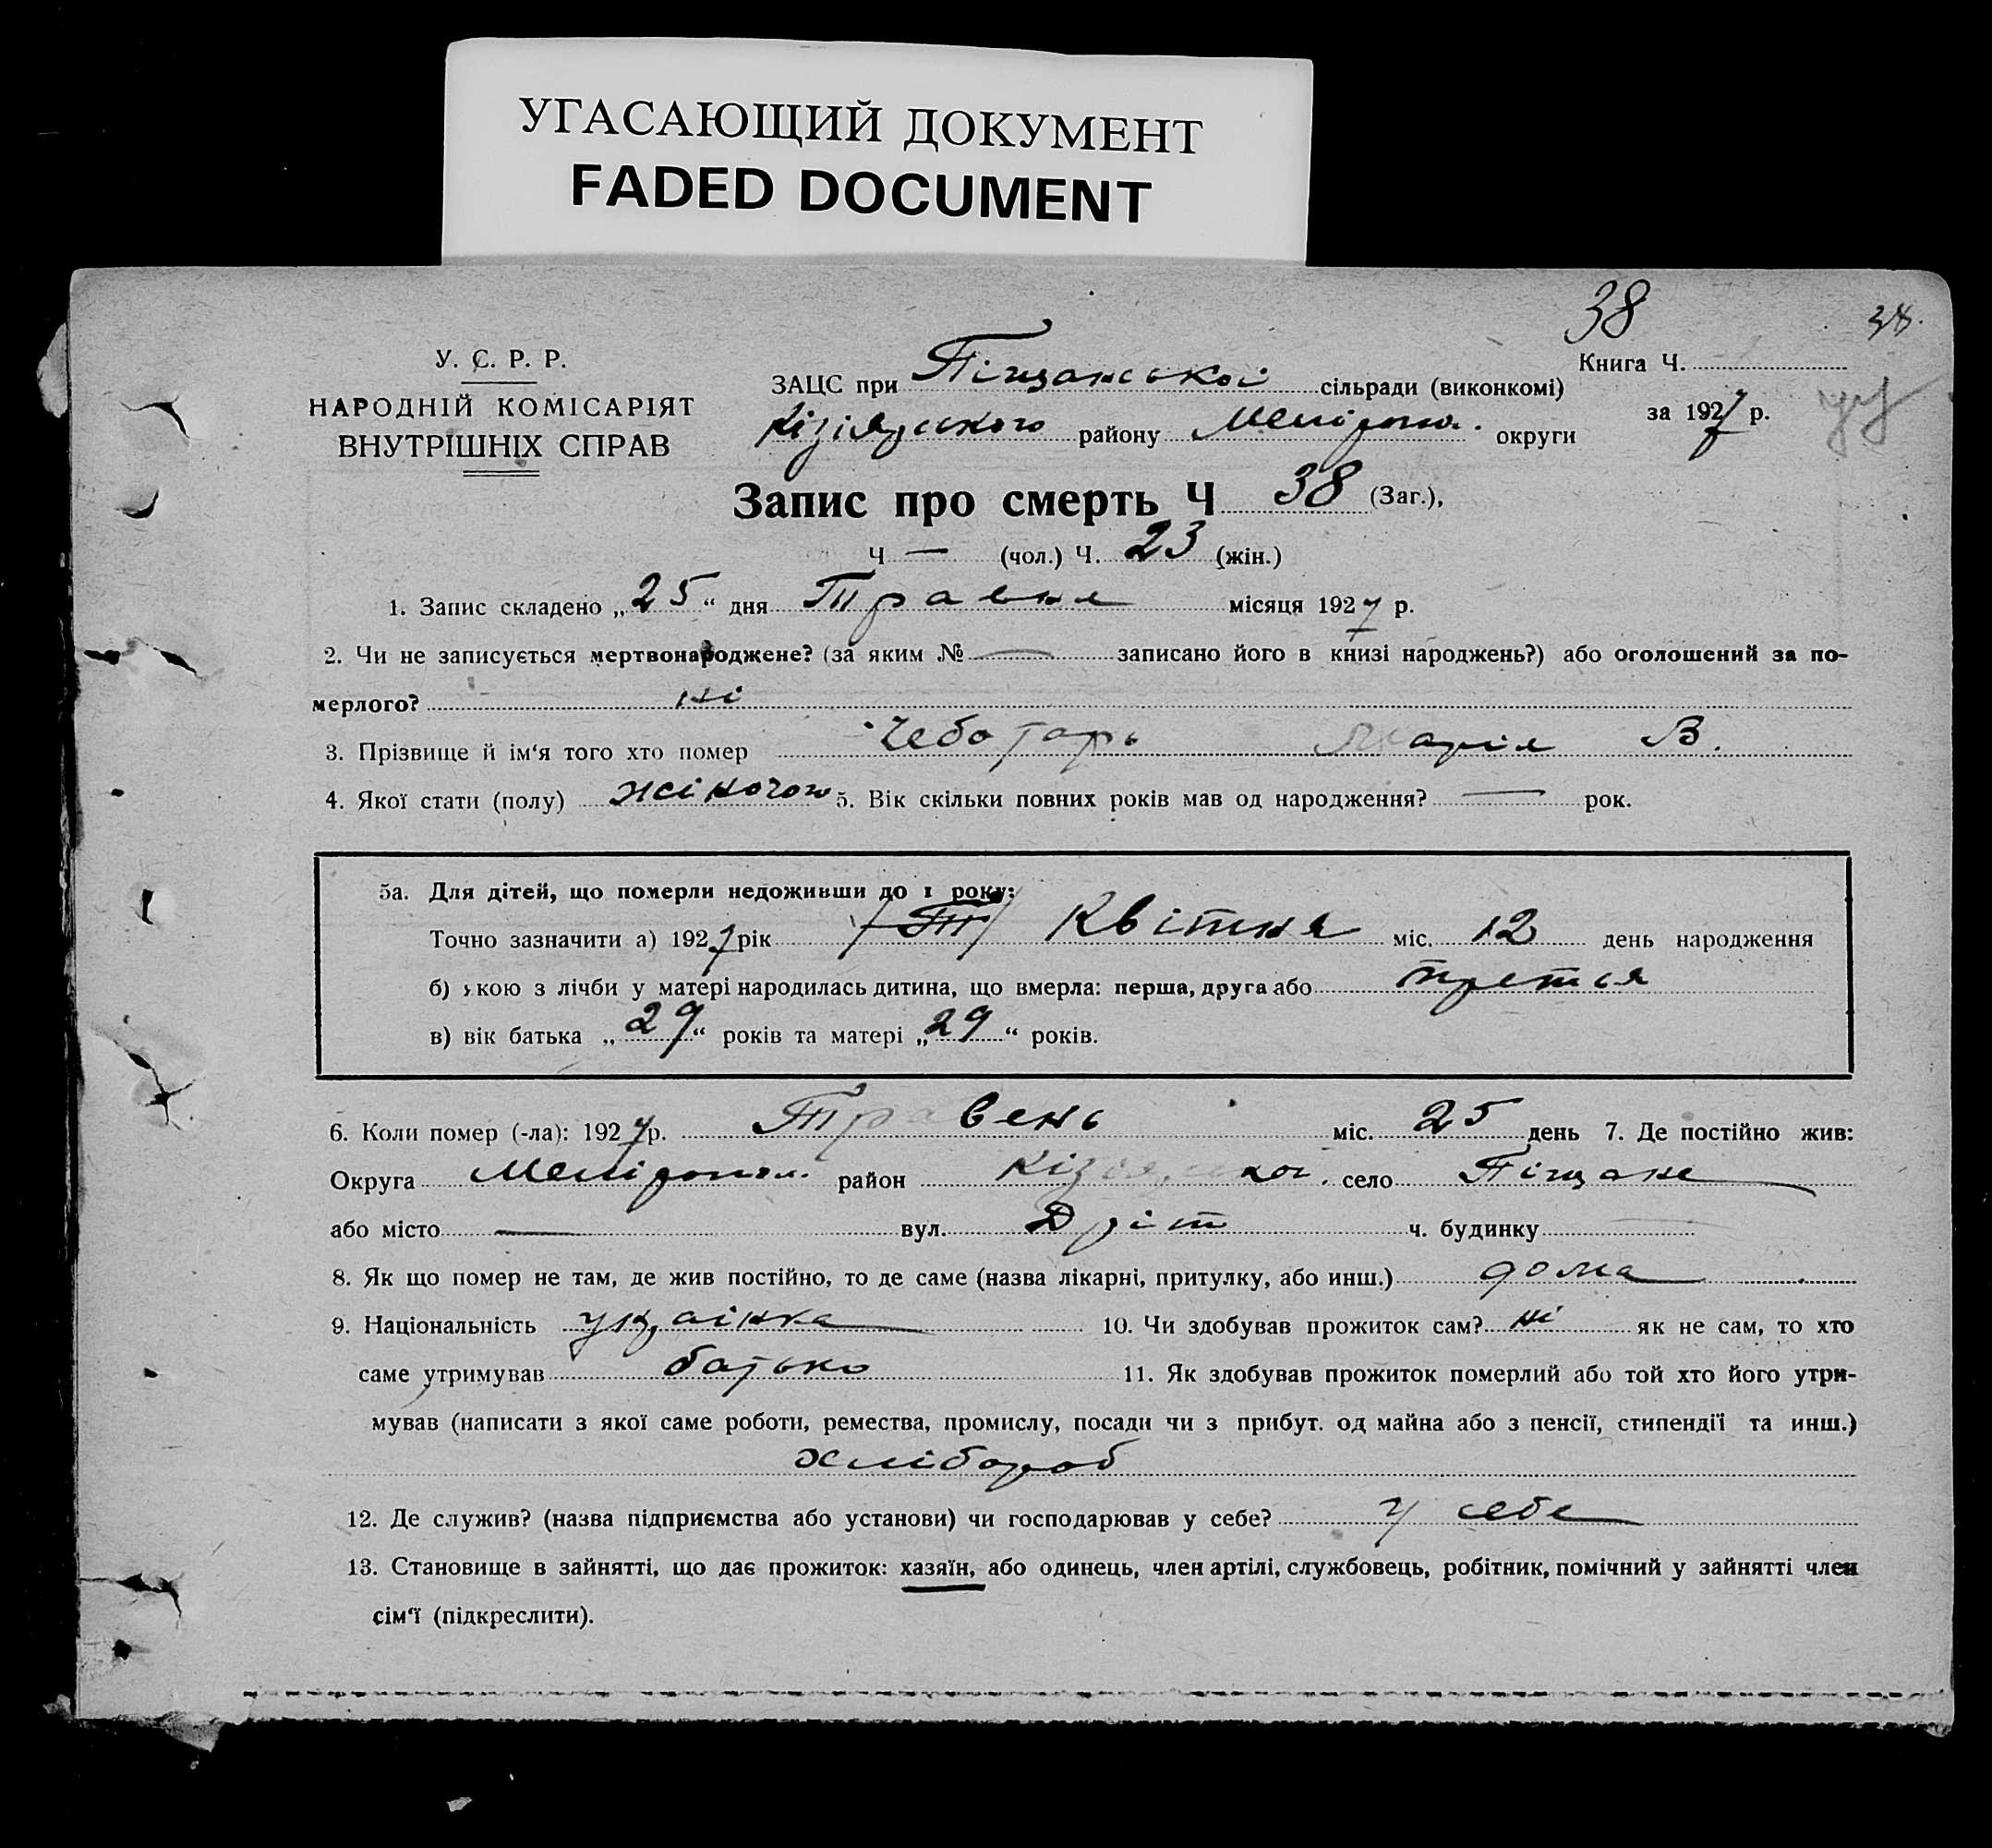 УГАСАЮЩИЙ ДОКУМЕНТ
FADED DOCUMENT
38
38.
У. С. Р. Р.
НАРОДНІЙ КОМІСАРІЯТ
ВНУТРІШНІХ СПРАВ
ЗАЦС при Піщанської сільради (виконкомі)
Книга Ч.
за 1927 р.
Кізіярського району Меліропол. округи
Запис про смерть Ч 38 (Заг.),
Ч — (чол.) Ч. 23 (жін.)
1. Запис складено „25“ дня Травня місяця 1927 р.
2. Чи не записується мертвонароджене? (за яким № — записано його в книзі народжень?) або оголошений за по-
мерлого? ні
3. Прізвище й ім‘я того хто помер Чеботарь Марія В.
4. Якої стати (полу) жіночого 5. Вік скільки повних років мав од народження? — рок.
5а. Для дітей, що померли недоживши до 1 року:
Точно зазначити а) 1927 рік Квітня міс. 12 день народження
б) якою з лічби у матері народилась дитина, що вмерла: перша, друга або третья
в) вік батька „29“ років та матері „29“ років.
6. Коли помер (-ла): 1927 р. Травень міс. 25 день 7. Де постійно жив:
Округа Меліропол. район село Піщане
або місто — вул. ч. будинку —
8. Як що помер не там, де жив постійно, то де саме (назва лікарні, притулку, або инш.) дома
9. Національність українка 10. Чи здобував прожиток сам? ні як не сам, то хто
саме утримував батько 11. Як здобував прожиток померлий або той хто його утри-
мував (написати з якої саме роботи, ремества, промислу, посади чи з прибут. од майна або з пенсії, стипендії та инш.)
хлібороб
12. Де служив? (назва підприємства або установи) чи господарював у себе? у себе
13. Становище в зайнятті, що дає прожиток: хазяїн, або одинець, член артілі, службовець, робітник, помічний у зайнятті член
сім‘ї (підкреслити).